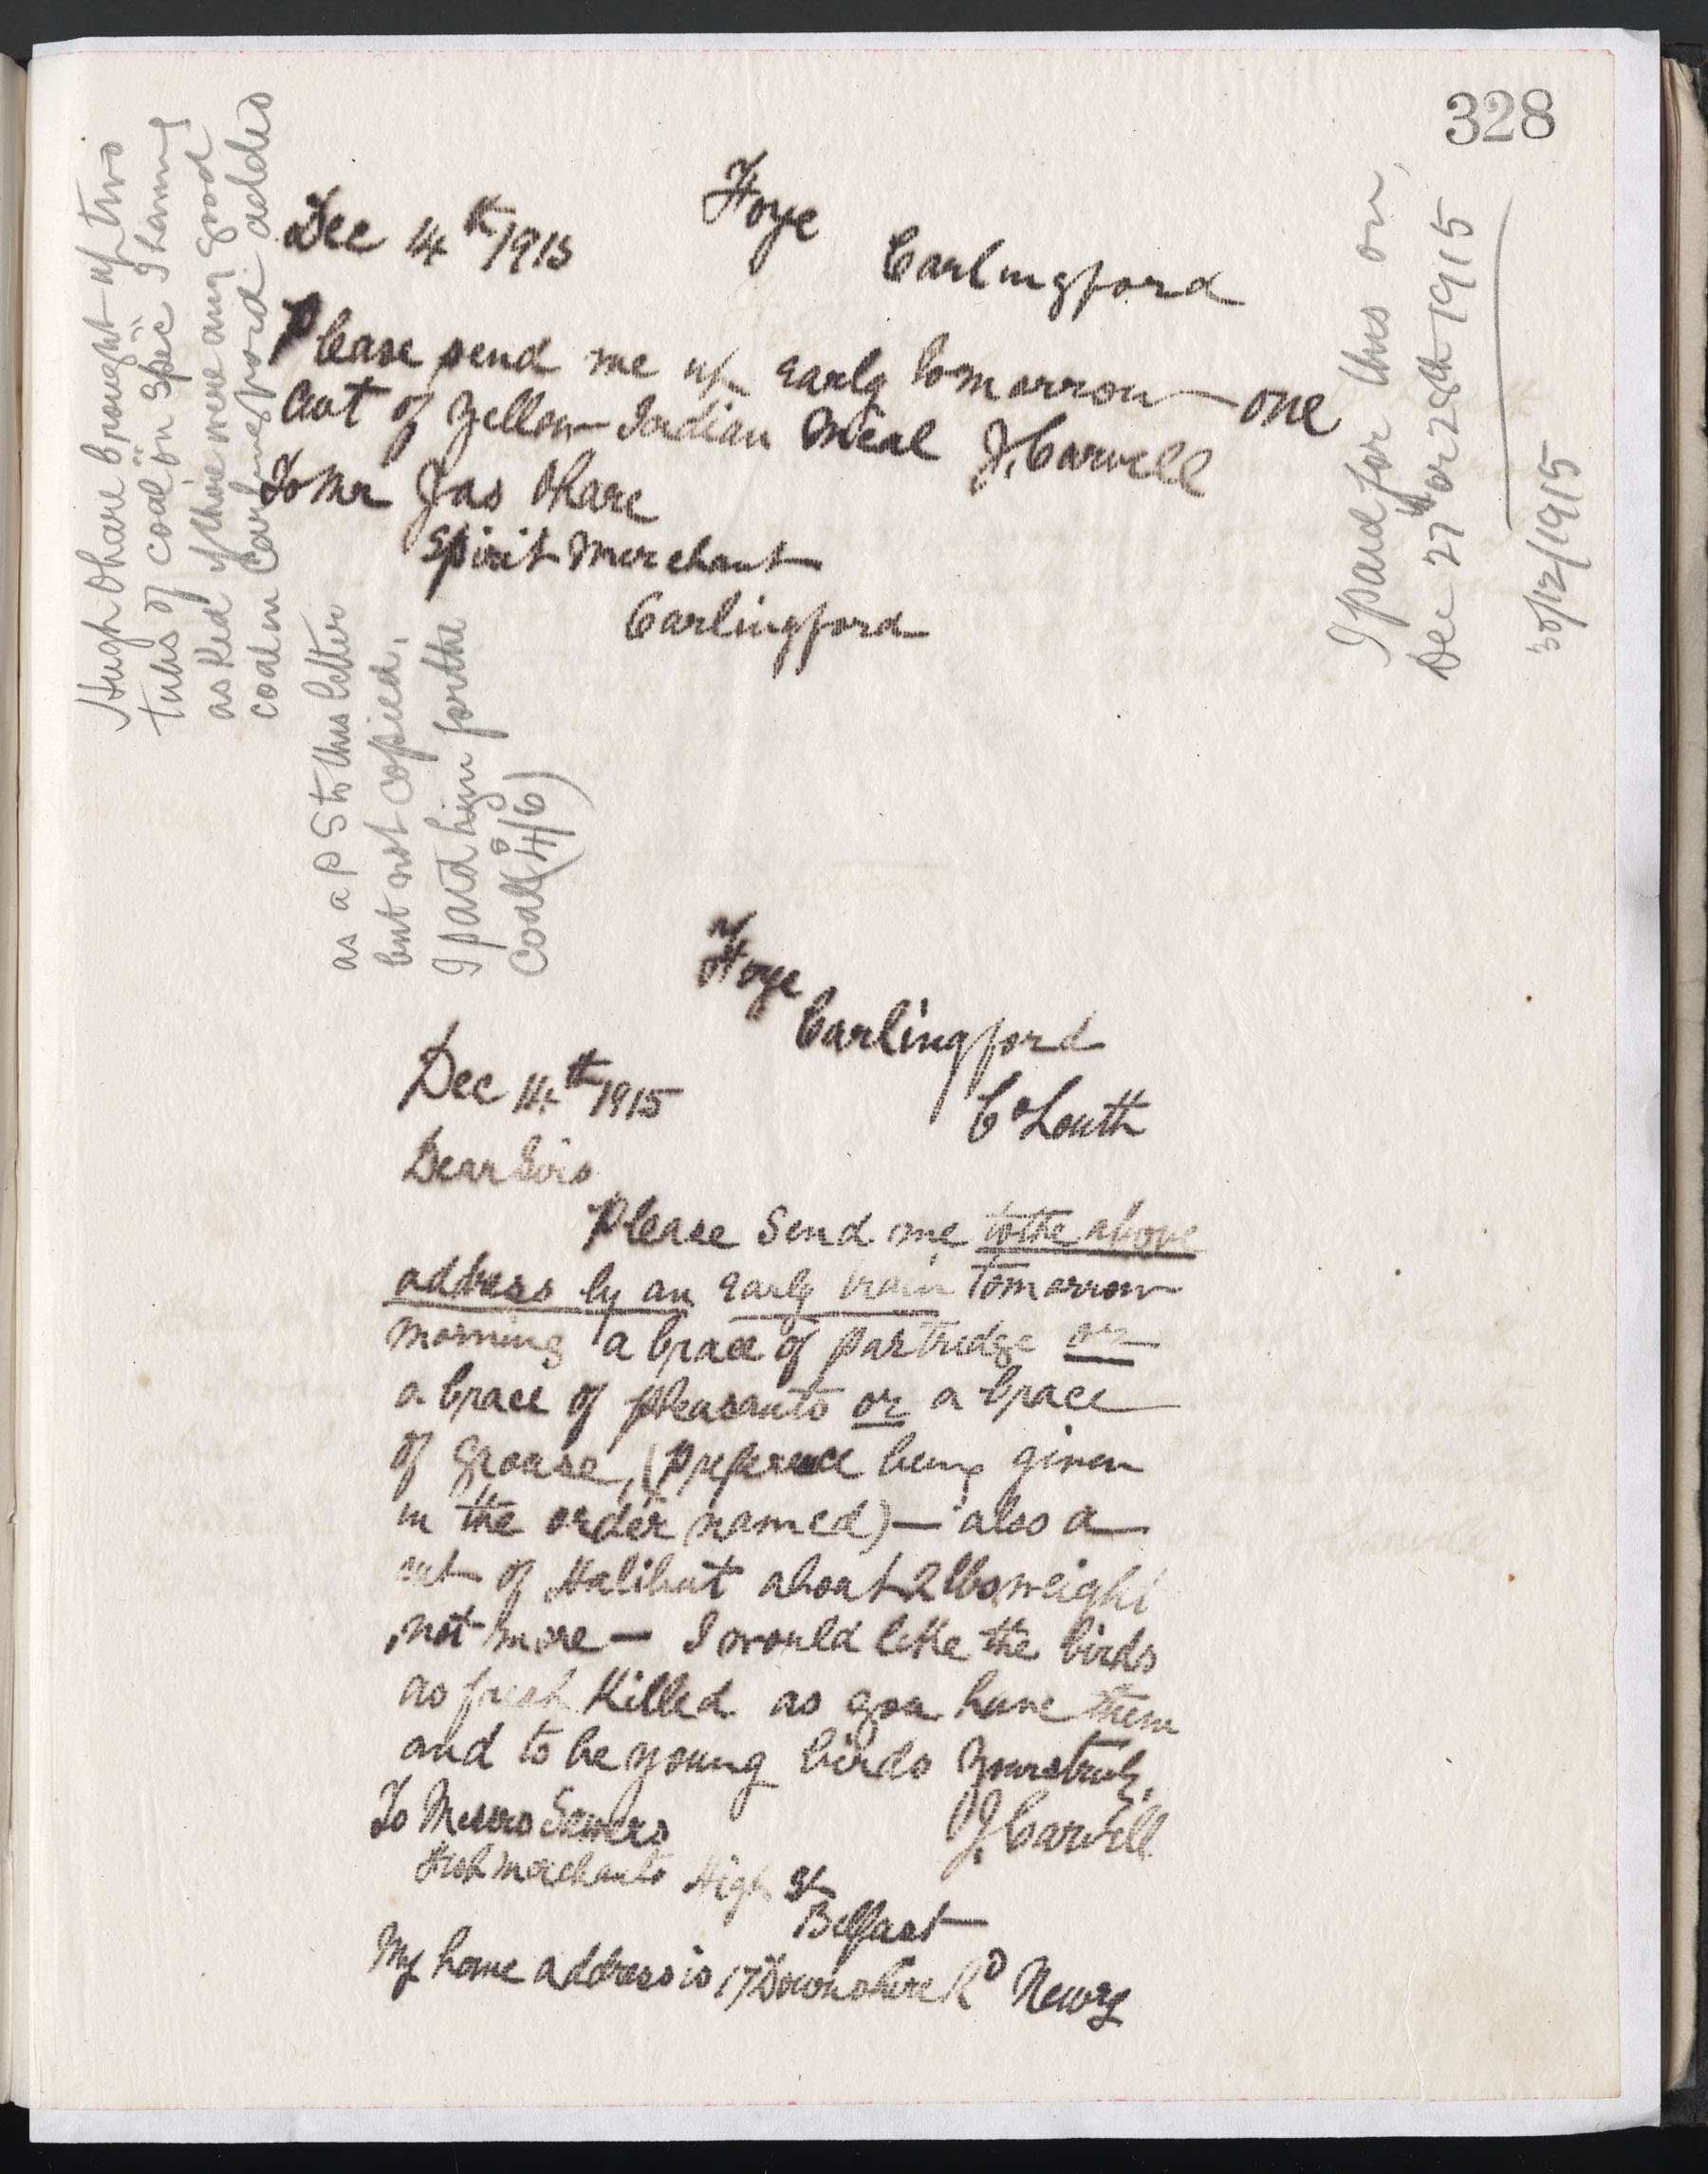 328
Foye
Carlingford
Dec 14th 1915
Please send me up early tomorrow one
Cwt of yellow Indian Meal J. Carvill
To Mr Jas OHare
Spirit Merchant
Carlingford
Hugh OHare brought up two
tubs of coal "on spec" I having
asked if there were any good
coal in Carlingford: added
as a P S to this letter
but not copied.
I paid him for the
Coal (4/6)
I paid for this on
Dec 27th or 28th 1915
30/12/1915
Foye
Carlingford
Co Louth
Dec 14th 1915
Dear Sirs
Please Send me to the above
address by an early train tomorrow
morning a brace of partridge or
a brace of pheasants or a brace
of Grouse, (preference being given
in the order named) — also a
cut of Halibut about 2 lbs weight
not more — I would like the birds
as fresh Killed as you have them
and to be young birds Yours truly,
J. Carvill
To Messrs Sawers
Fish merchants High St
Belfast
My home address is 17 Downshire Rd Newry